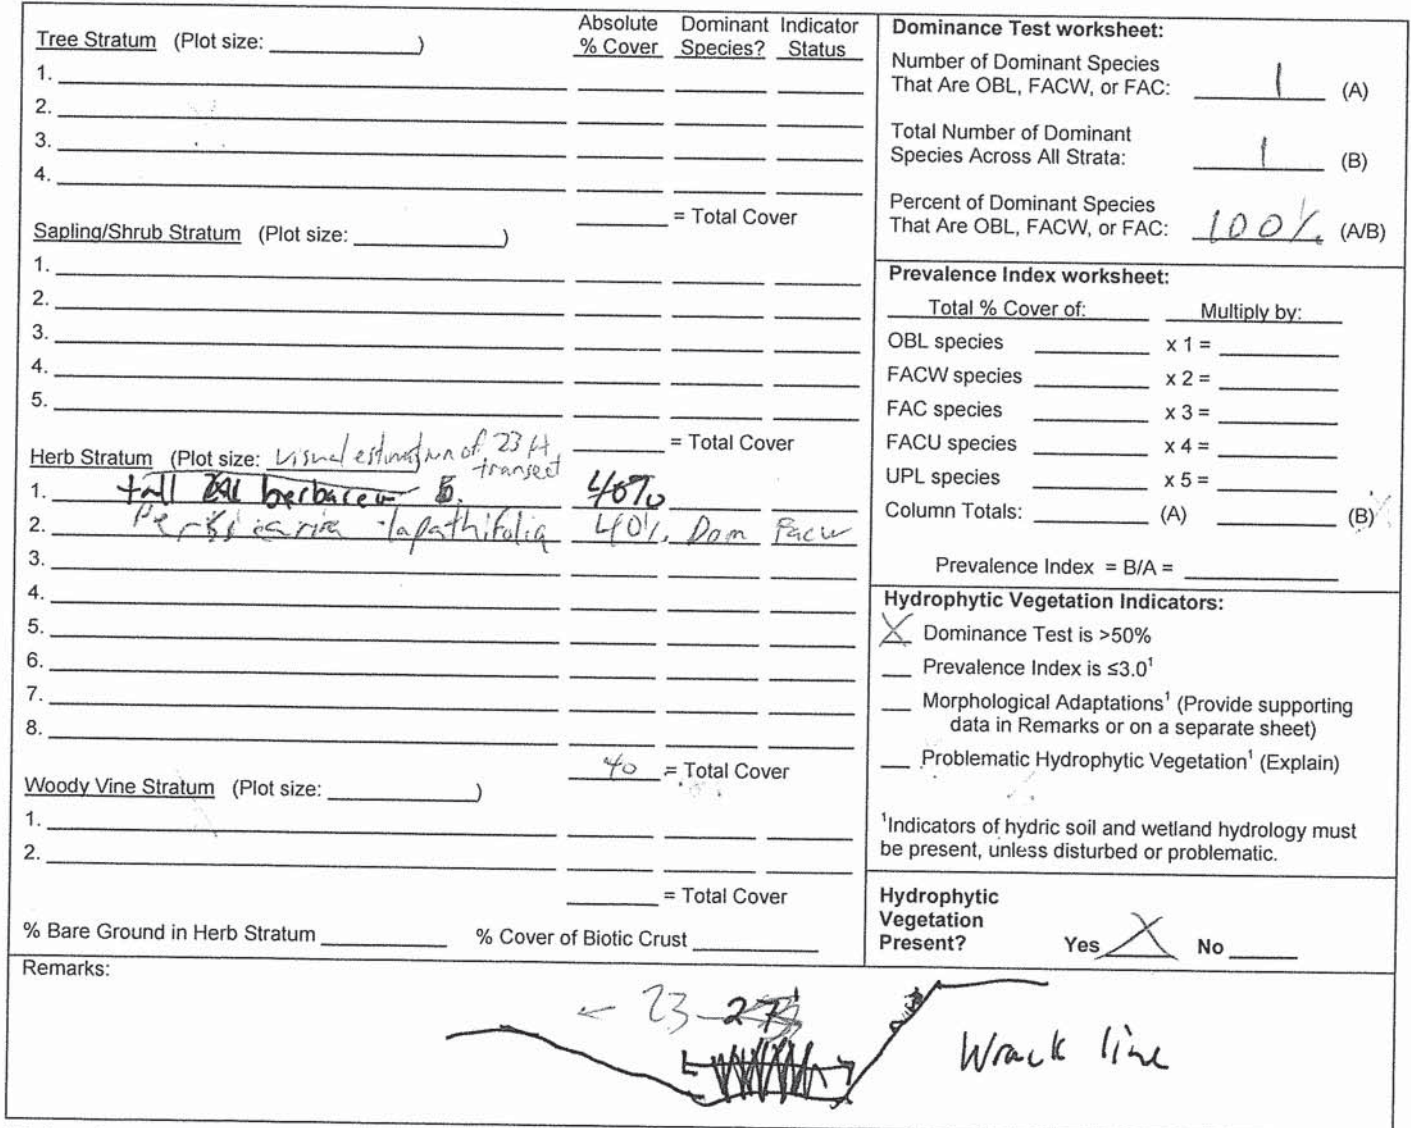 Absolute Dominant Indicator
Tree Stratum (Plot size: ____________) % Cover Species? Status
1.
2.
3.
4.
= Total Cover
Sapling/Shrub Stratum (Plot size: ____________)
1.
2.
3.
4.
5.
= Total Cover
Herb Stratum (Plot size: visual estimation of 23 ft
transect
1. tall 40%
2. Persicaria lapathifolia 40% Dom Facw
3.
4.
5.
6.
7.
8.
40 = Total Cover
Woody Vine Stratum (Plot size: ____________)
1.
2.
= Total Cover
% Bare Ground in Herb Stratum ____________ % Cover of Biotic Crust ____________
Dominance Test worksheet:
Number of Dominant Species
That Are OBL, FACW, or FAC: 1 (A)
Total Number of Dominant
Species Across All Strata: 1 (B)
Percent of Dominant Species
That Are OBL, FACW, or FAC: 100% (A/B)
Prevalence Index worksheet:
Total % Cover of: Multiply by:
OBL species ____________ x 1 = ____________
FACW species ____________ x 2 = ____________
FAC species ____________ x 3 = ____________
FACU species ____________ x 4 = ____________
UPL species ____________ x 5 = ____________
Column Totals: ____________ (A) ____________ (B)
Prevalence Index = B/A = ____________
Hydrophytic Vegetation Indicators:
X Dominance Test is >50%
__ Prevalence Index is ≤3.0¹
__ Morphological Adaptations¹ (Provide supporting
data in Remarks or on a separate sheet)
__ Problematic Hydrophytic Vegetation¹ (Explain)
¹Indicators of hydric soil and wetland hydrology must
be present, unless disturbed or problematic.
Hydrophytic
Vegetation
Present? Yes X No ____
Remarks:
← 23 27
Wrack line